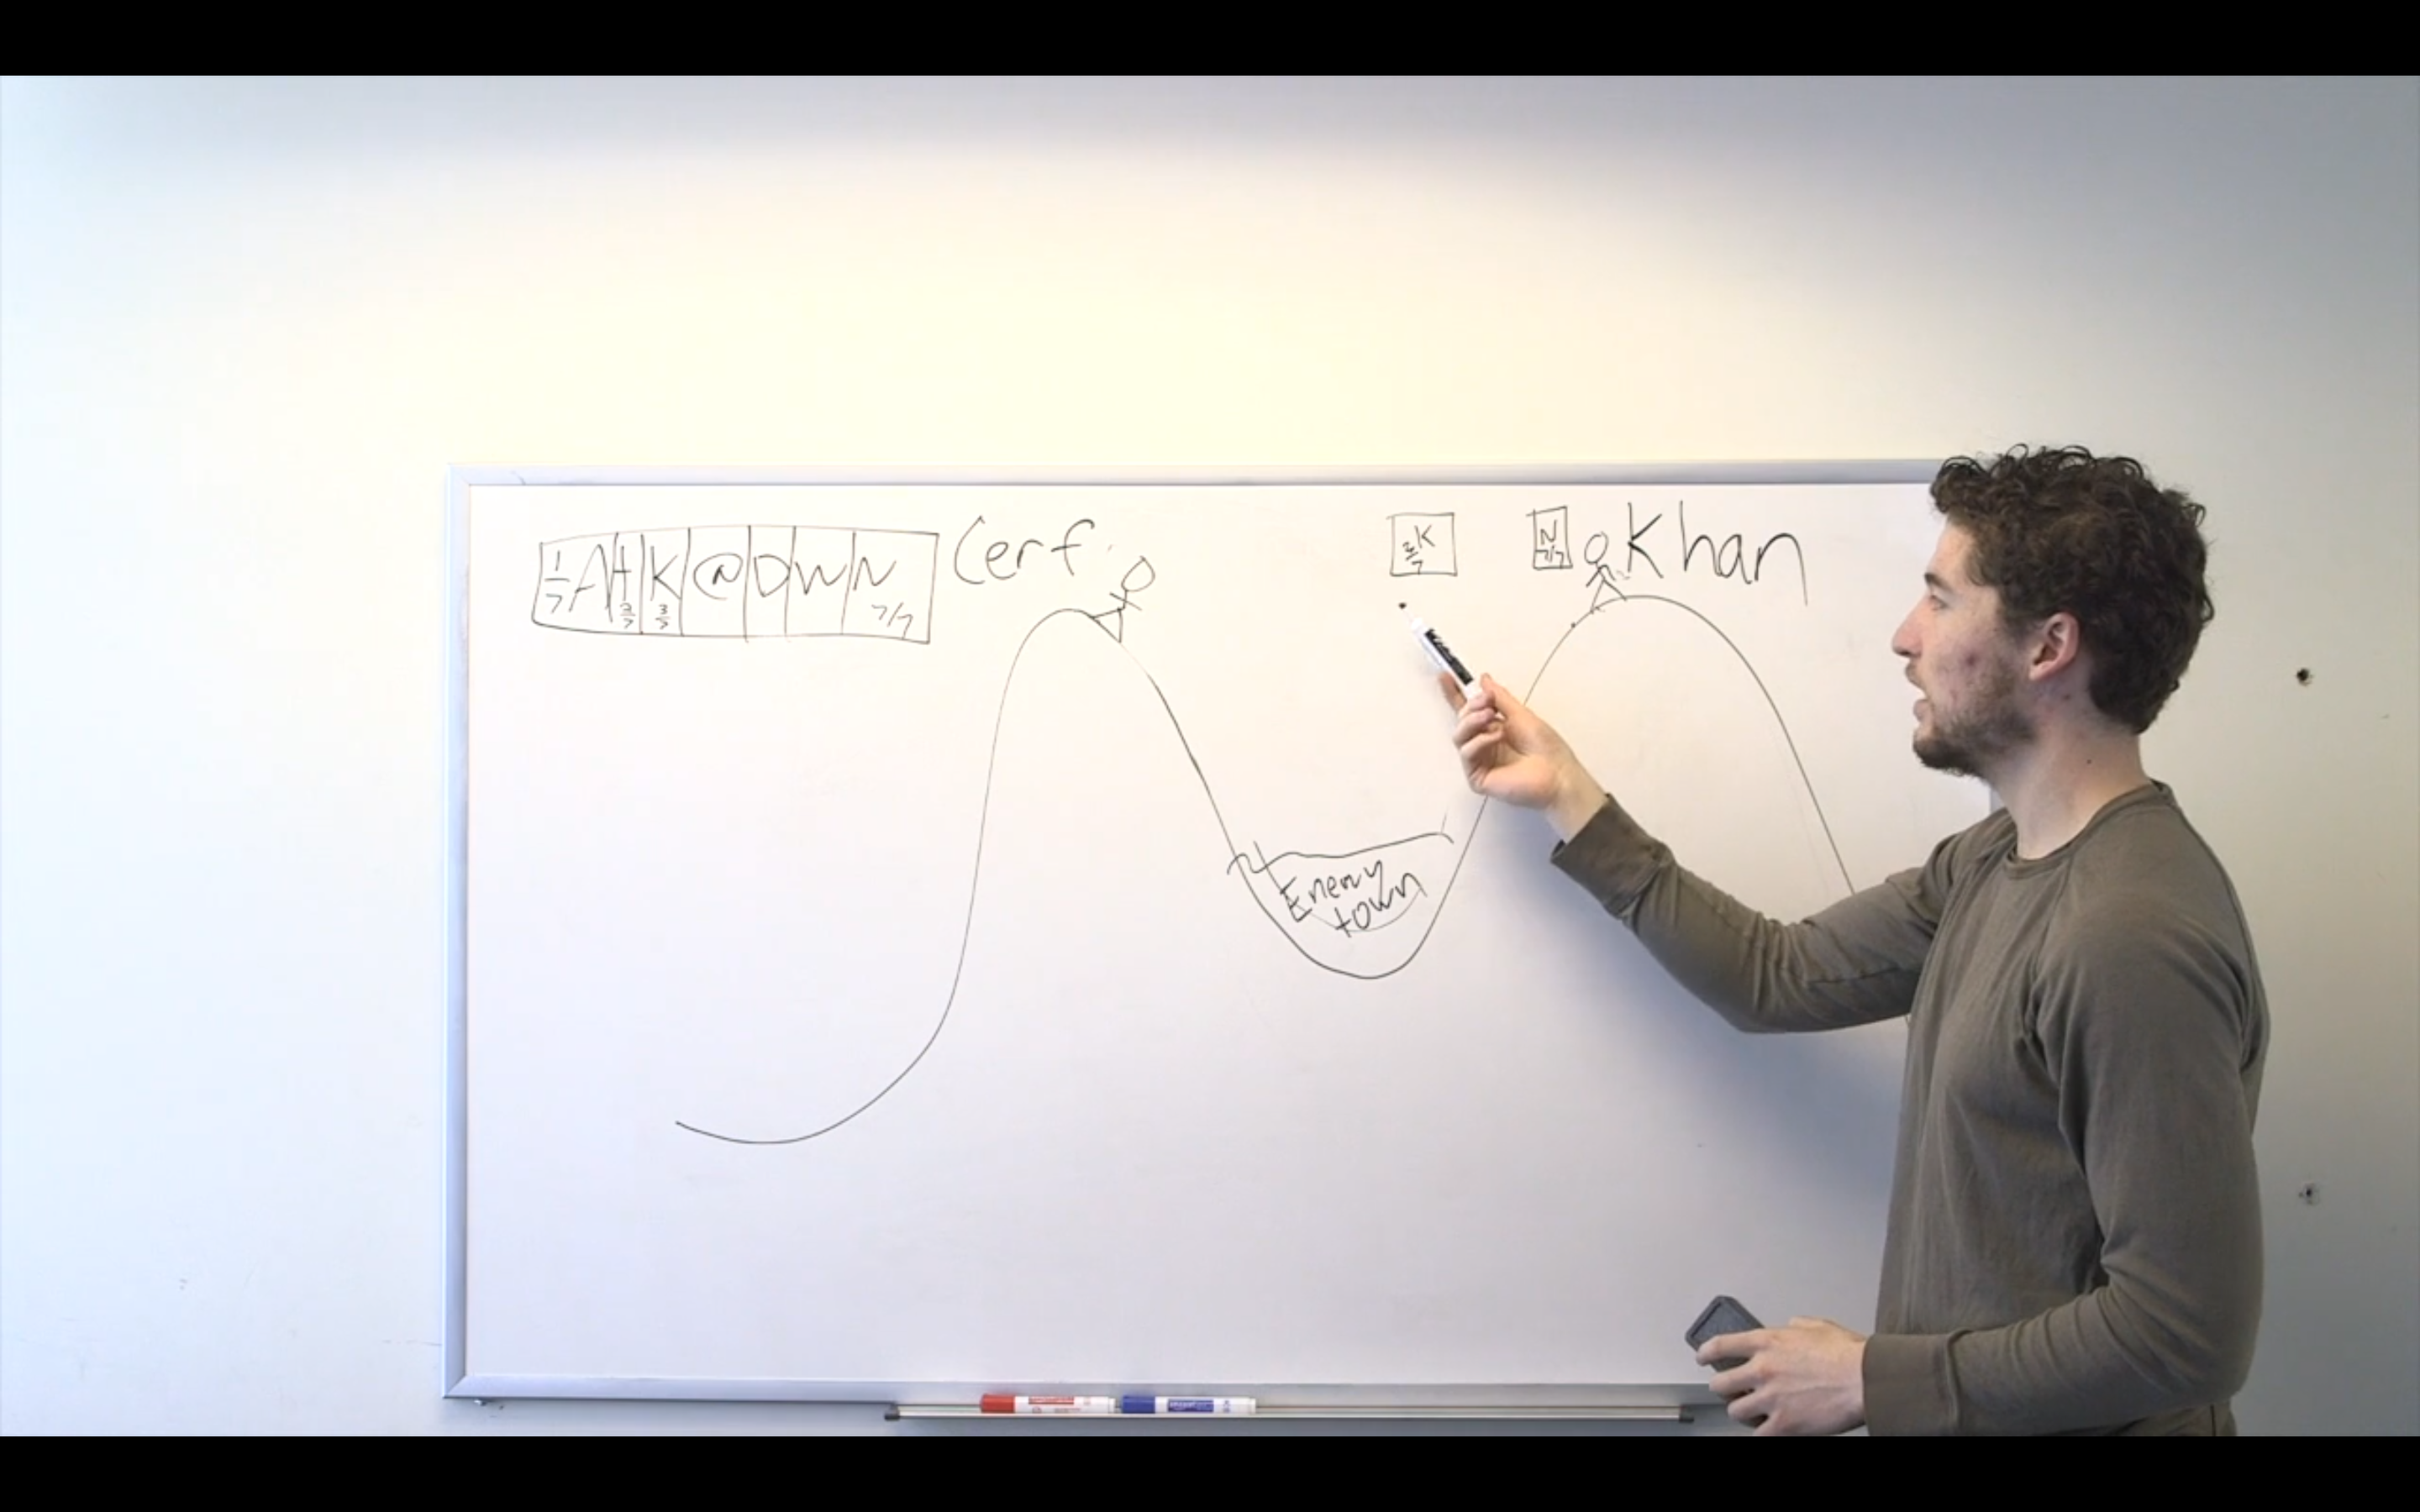 1/7 A t 2/7 K 3/7 @ D W N 7/7
Cerf
K 3/7
N 7/7
Khan
Enemy
town